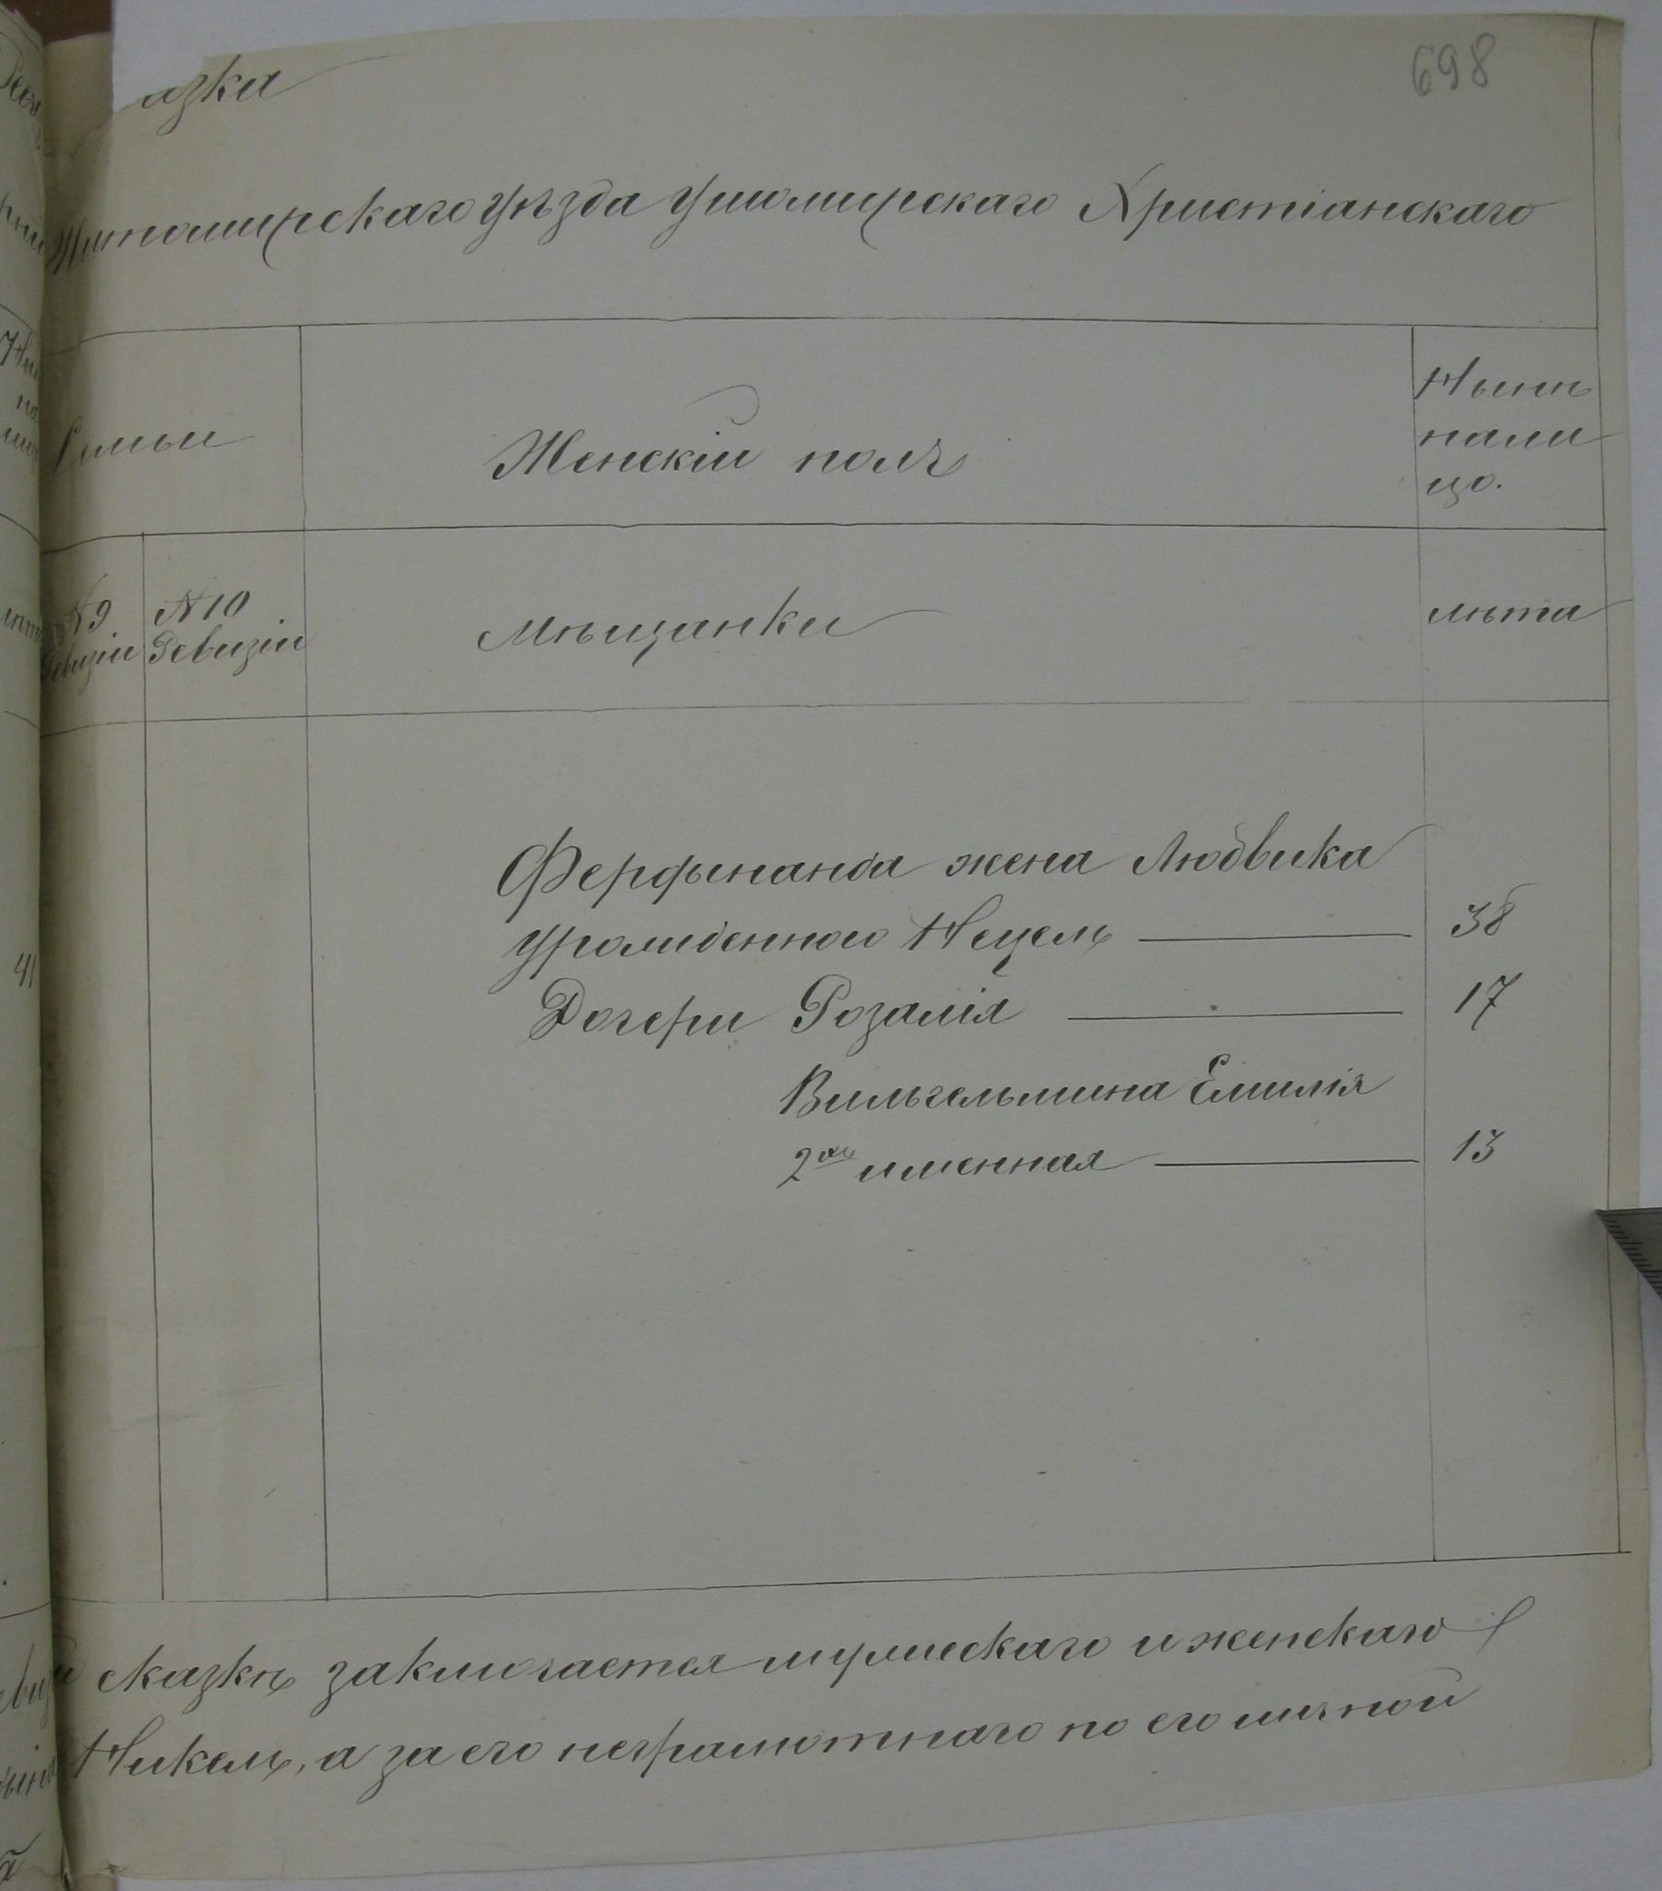 698
азка
Житомирскаго уѣзда Ушомирскаго Христіанскаго
Семьи
Женскій полъ
Нынѣ
нали
цо.
№9
Ревизіи
№10
Ревизіи
Мѣщанки
лѣта
Ферфинанда жена Людвика
урожденного Нецель 38
Дочери Розалія 17
Вильгельмина Емилія
2ая именная 13
сказкѣ заключается мужескаго и женскаго
Никель, а за его неграмотнаго по его личной
41